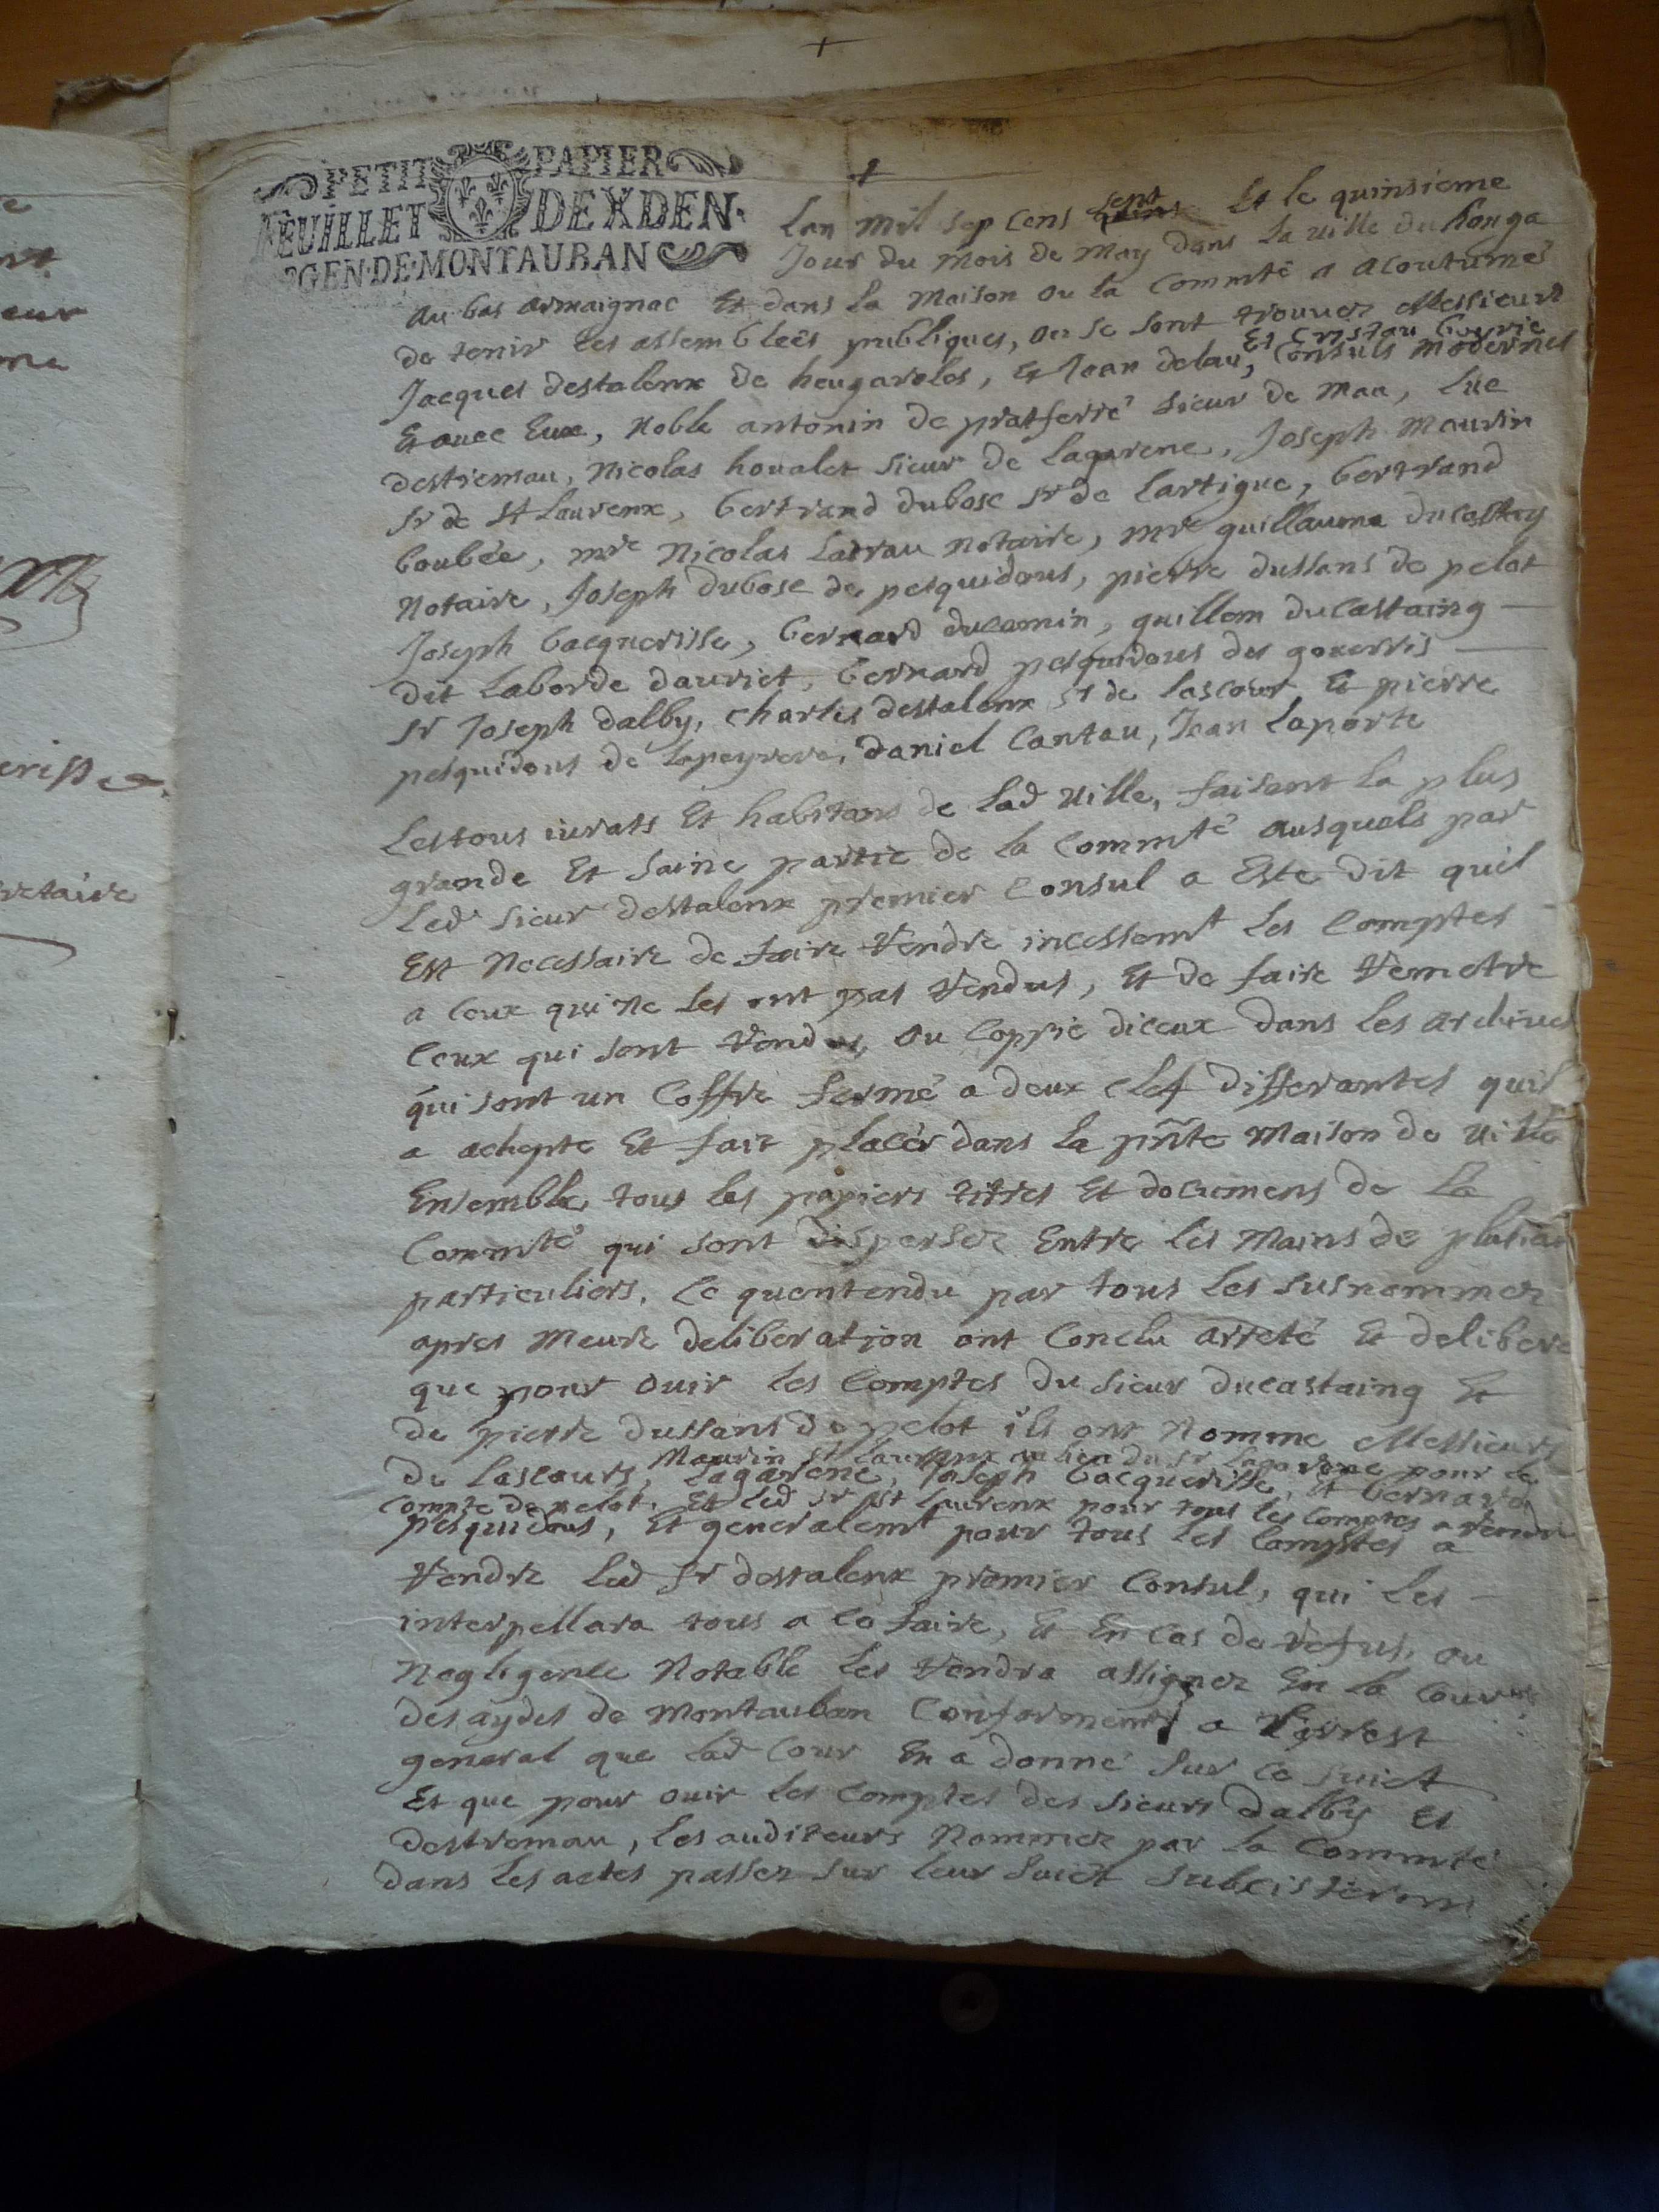 PETIT PAPIER
FEUILLET DE X DEN.
GEN. DE. MONTAUBAN
Lan mil sep cens sept Et le quinsieme
Jour du mois de May dans la ville du houga
au bas armaignac Et dans la maison ou la Commté a acoutumés
de tenir les assembleés publiques, ou se sont trouvez Messieurs
Jacques destalenx de heugaroles, Et Jean delau, Et Cristau
Consuls modernes
Et avec Eux, Noble antonin de pratferré sieur de Maa, Luc
destremau, Nicolas houalet sieur de Lagarene, Joseph Maurin
sr de St Laurenx, bertrand dubosc sr de Lartigue, bertrand
boubée, mre Nicolas Ladrau notaire, mre guillaume ducastaing
Notaire, Joseph dubosc de pesquidous, pierre dussans de pelot
Joseph bacquerisse, bernard ducamin, guillem ducastaing
dit Laborde dauriet, bernard pesquidous des gouerris
sr Joseph dalby, charles destalenx sr de lascours Et pierre
pesquidous de Lapeyrere, daniel Cantau, Jean Laporte
Les tous iurats Et habitans de Lad ville, faisant la plus
grande Et saine partie de la Commté ausquels par
Led sieur destalenx premier Consul a Este dit quil
Est Necessaire de faire rendre incessemt les Comptes
a Ceux qui ne les ont pas rendus, Et de faire remetre
Ceux qui sont rendus, ou Coppie diceux dans les archives
qui sont un Coffre fermé a deux clef differantes quil
a achepte Et fait placér dans la pñte maison de ville
Ensemble tous les papiers titres Et documens de La
Commté qui sont dispersez Entre les mains de plusieurs
particuliers, Ce quentendu par tous les susnommez
apres meure deliberation ont Conclu arreté Et delibere
que pour ouir les Comptes du sieur ducastaing Et
de pierre dussans de pelot ils ont Nomme Messieurs
Maurin St Laurenx au lieu du sr Lagarene pour le
de Lascours, Lagarene, Joseph bacquerisse, Et bernard
compte de pelot. Et led sr St Laurenx pour tous les comptes a rendre
pesquidous, Et generalemt pour tous les Comptes a
rendre Led sr destalenx premier Consul, qui les
interpellara tous a Ce faire, Et En Cas de refus, ou
Negligence Notable les rendra assignez En la Cour
des aydes de Montauban Conformemt a Larrest
general que lad Cour En a donné sur Ce suiet
Et que pour ouir les Comptes des sieurs dalby Et
destremau, Les auditeurs Nommez par la Commté
dans les actes passez sur leur suiet subcisteront